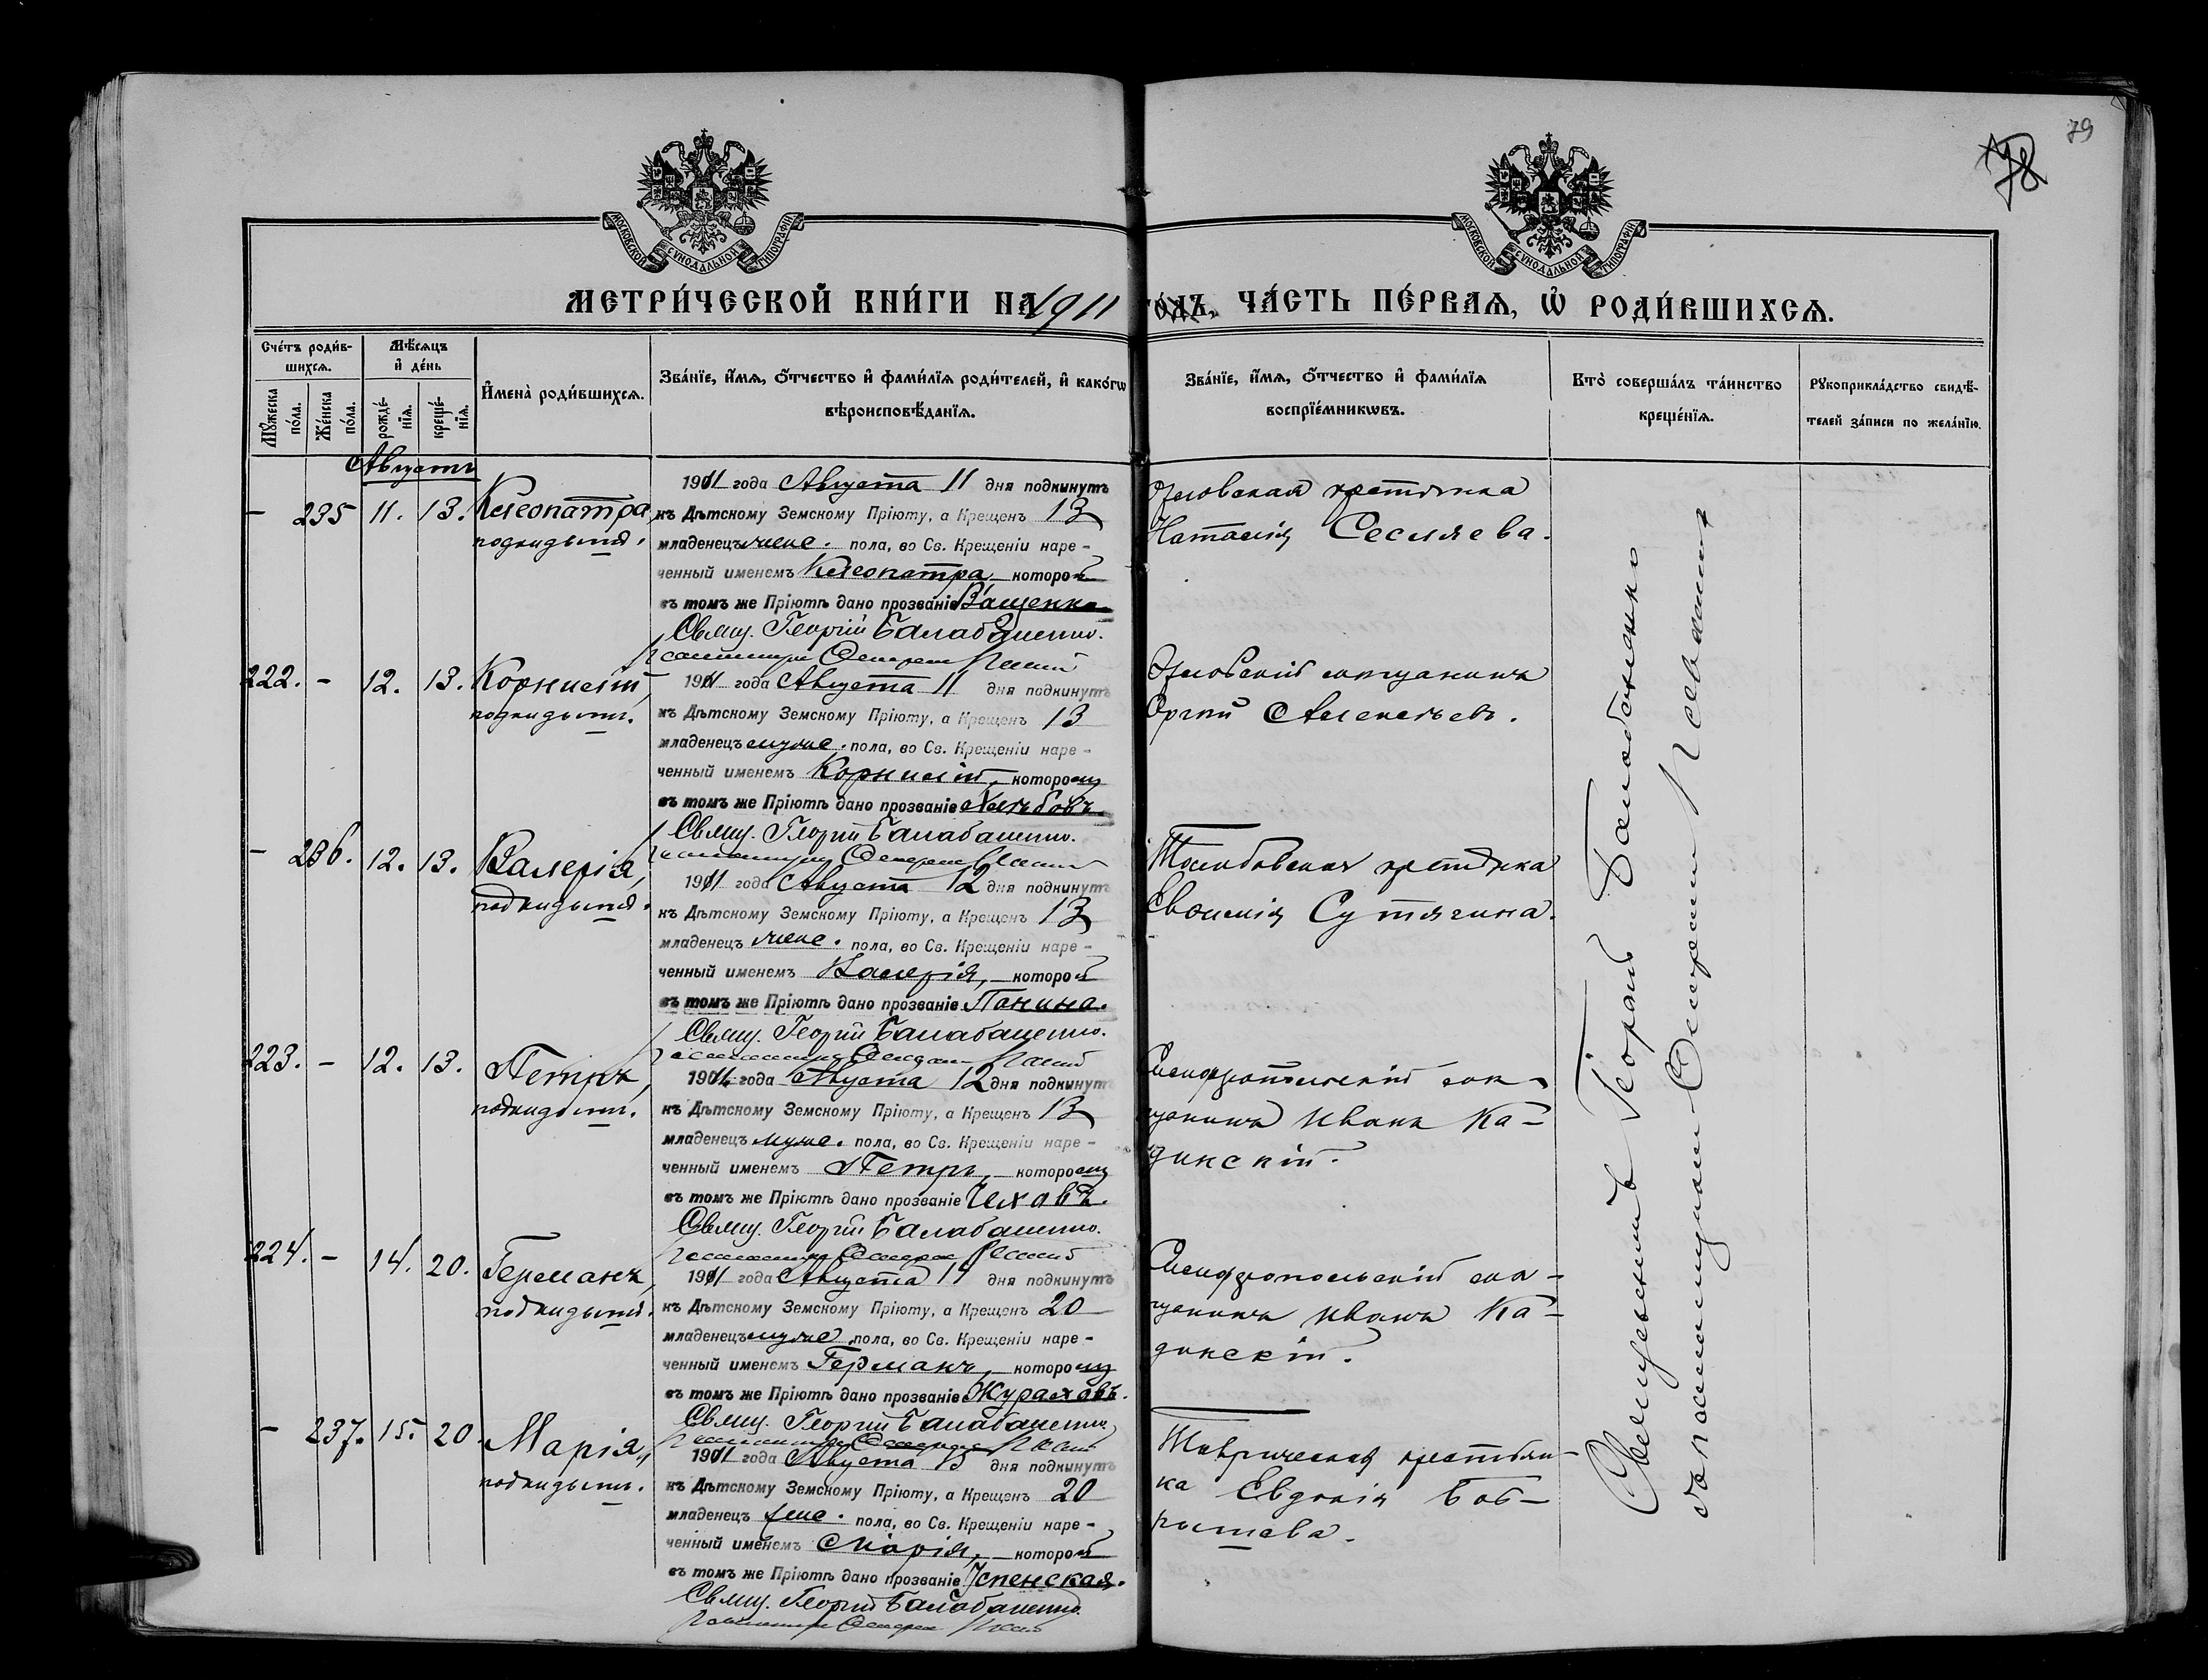 79
78
МОСКОВСКОЙ СѴНОДАЛЬНОЙ ТИПОГРАФІИ
МОСКОВСКОЙ СѴНОДАЛЬНОЙ ТИПОГРАФІИ
МЕТРИ́ЧЕСКОЙ КНИ́ГИ НА 1911 ГО́ДЪ, ЧА́СТЬ ПЕ́РВАѦ, Ѽ РОДИ́ВШИХСѦ.
Сче́тъ роди́в-
шихсѧ.
Мꙋ́жеска по́ла.
Же́нска по́ла.
Мѣ́сѧцъ
и҆ де́нь
рожде́-
нїѧ.
креще́-
нїѧ.
И҆мена̀ роди́вшихсѧ.
Зва́нїе, и҆́мѧ, ѻ҆́тчество и҆ фами́лїѧ роди́телей, и҆ како́гѡ
вѣроисповѣ́данїѧ.
Зва́нїе, и҆́мѧ, ѻ҆́тчество и҆ фами́лїѧ
воспрїе́мникѡвъ.
Кто̀ соверша́лъ та́инство
креще́нїѧ.
Рꙋкоприкла́дство свидѣ́-
телей за́писи по жела́нїю.
Августъ
– 235 11. 13. Клеопатра,
подкидышъ.
1911 года Августа 11 дня подкинутъ
къ Дѣтскому Земскому Пріюту, а Крещенъ 13
младенецъ жене. пола, во Св. Крещеніи наре-
ченный именемъ Клеопатра, которой
въ томъ же Пріютѣ дано прозваніе Ващенко.
Свящ. Георгій Балабаненко.
Орловская крестьянка
Наталія Сесляева.
222. – 12. 13. Корнилій,
подкидышъ.
1911 года Августа 11 дня подкинутъ
къ Дѣтскому Земскому Пріюту, а Крещенъ 13
младенецъ муже. пола, во Св. Крещеніи наре-
ченный именемъ Корнилій, которому
въ томъ же Пріютѣ дано прозваніе Хлѣбовъ.
Свящ. Георгій Балабаненко.
Орловскій мѣщанинъ
– 236. 12. 13. Валерія,
подкидышъ.
1911 года Августа 12 дня подкинутъ
къ Дѣтскому Земскому Пріюту, а Крещенъ 13
младенецъ жене. пола, во Св. Крещеніи наре-
ченный именемъ Валерія, которой
въ томъ же Пріютѣ дано прозваніе Панина.
Свящ. Георгій Балабаненко.
Тамбовская крестьянка
Сутягина.
223. – 12. 13. Петръ,
подкидышъ.
1911 года Августа 12 дня подкинутъ
къ Дѣтскому Земскому Пріюту, а Крещенъ 13
младенецъ муже. пола, во Св. Крещеніи наре-
ченный именемъ Петръ, которому
въ томъ же Пріютѣ дано прозваніе Чеховъ.
Свящ. Георгій Балабаненко.
Симферопольскій мѣ-
щанинъ Иванъ Ка-
динскій.
224. – 14. 20. Германъ,
подкидышъ.
1911 года Августа 14 дня подкинутъ
къ Дѣтскому Земскому Пріюту, а Крещенъ 20
младенецъ муже. пола, во Св. Крещеніи наре-
ченный именемъ Германъ, которому
въ томъ же Пріютѣ дано прозваніе Жураховъ.
Свящ. Георгій Балабаненко.
Симферопольскій мѣ-
щанинъ Иванъ Ка-
динскій.
– 237. 15. 20. Марія,
подкидышъ.
1911 года Августа 15 дня подкинутъ
къ Дѣтскому Земскому Пріюту, а Крещенъ 20
младенецъ жене. пола, во Св. Крещеніи наре-
ченный именемъ Марія, которой
въ томъ же Пріютѣ дано прозваніе Успенская.
Свящ. Георгій Балабаненко.
Таврическая крестьян-
ка Евдокія Боб-
рышева.
Священникъ Георгій Балабаненко